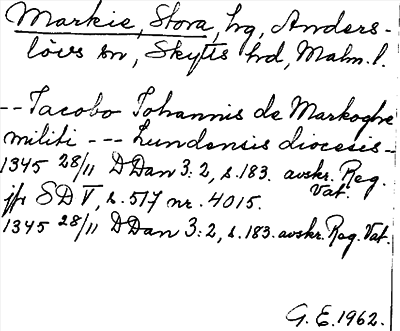 Markie, Stora, hg, Anders-
lövs sn, Skytts hd, Malm. l.
-- Jacobo Johannis de Markoghe
militi --- Lundensis diocesis -
1345 28/11 DDan 3:2, s. 183. avskr. Reg. Vat.
jfr SD V, s. 517 nr. 4015.
1345 28/11 DDan 3:2, s. 183. avskr. Reg. Vat.
G. E. 1962.